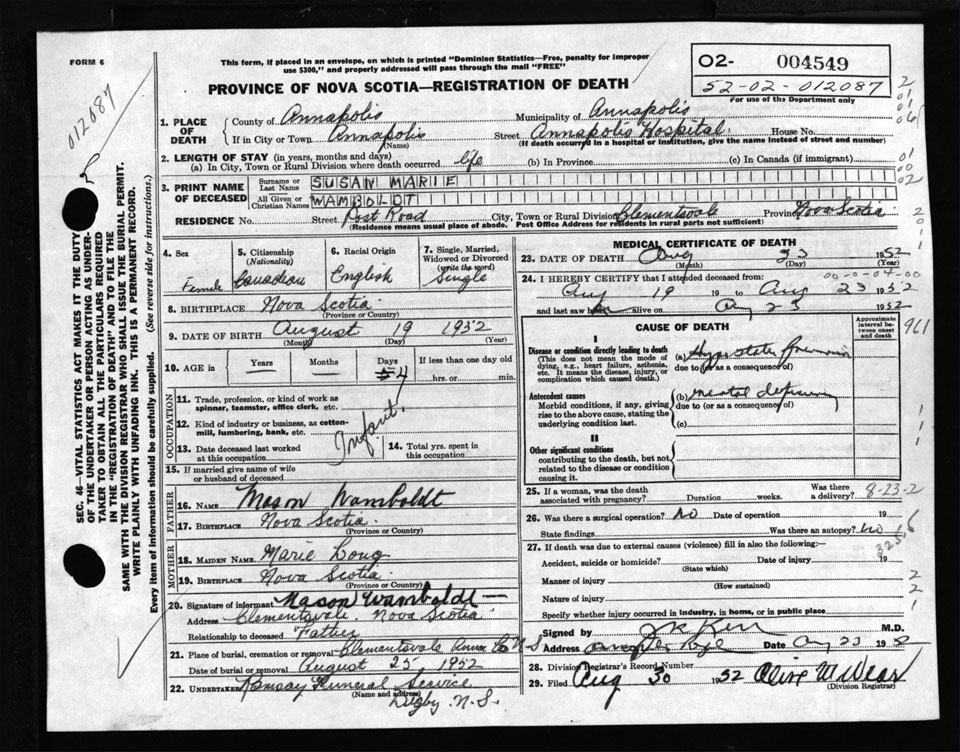 FORM 6
This form, if placed in an envelope, on which is printed "Dominion Statistics—Free, penalty for improper
use $300," and properly addressed will pass through the mail "FREE"
O2- 004549
52-02-012087
For use of the Department only
PROVINCE OF NOVA SCOTIA—REGISTRATION OF DEATH
012087
1. PLACE OF DEATH
County of Annapolis Municipality of Annapolis
If in City or Town Annapolis Street Annapolis Hospital House No.
(Name) (If death occurred in a hospital or institution, give the name instead of street and number)
2. LENGTH OF STAY (in years, months and days)
(a) In City, Town or Rural Division where death occurred life (b) In Province (c) In Canada (if immigrant)
3. PRINT NAME OF DECEASED
Surname or Last Name SUSAN MARIE
All Given or Christian Names WAMBOLDT
RESIDENCE No. Street Post Road City, Town or Rural Division Clementsvale Province Nova Scotia
(Residence means usual place of abode. Post Office Address for residents in rural parts not sufficient)
4. Sex Female
5. Citizenship (Nationality) Canadian
6. Racial Origin English
7. Single, Married, Widowed or Divorced (write the word) Single
8. BIRTHPLACE Nova Scotia
(Province or Country)
9. DATE OF BIRTH August 19 1952
(Month) (Day) (Year)
10. AGE in Years Months Days 4 If less than one day old
hrs. or min.
OCCUPATION
11. Trade, profession, or kind of work as
spinner, teamster, office clerk, etc.
12. Kind of industry or business, as cotton-
mill, lumbering, bank, etc.
Infant
13. Date deceased last worked
at this occupation
14. Total yrs. spent in
this occupation
15. If married give name of wife
or husband of deceased
FATHER
16. NAME Mason Wamboldt
17. BIRTHPLACE Nova Scotia
(Province or Country)
MOTHER
18. MAIDEN NAME Marie Long
19. BIRTHPLACE Nova Scotia
(Province or Country)
20. Signature of informant Mason Wamboldt
Address Clementsvale, Nova Scotia
Relationship to deceased Father
21. Place of burial, cremation or removal Clementsvale Anna Co N S
Date of burial or removal August 25, 1952
22. UNDERTAKER Ramsay Funeral Service
(Name and address)
Digby N.S.
MEDICAL CERTIFICATE OF DEATH
23. DATE OF DEATH Aug 23 1952
(Month) (Day) (Year)
00-0-04-00
24. I HEREBY CERTIFY that I attended deceased from:
Aug 19 19 to Aug 23 1952
and last saw alive on Aug 23 1952
CAUSE OF DEATH
Approximate interval between onset and death
961
I
Disease or condition directly leading to death
(This does not mean the mode of dying, e.g., heart failure, asthenia, etc. It means the disease, injury, or complication which caused death.)
(a) Hypostatic pneumonia
due to (or as a consequence of)
Antecedent causes
Morbid conditions, if any, giving rise to the above cause, stating the underlying condition last.
(b) mental deficiency
due to (or as a consequence of)
(c)
II
Other significant conditions
contributing to the death, but not related to the disease or condition causing it.
25. If a woman, was the death
associated with pregnancy? Duration weeks. Was there a delivery?
8-23-2
26. Was there a surgical operation? No Date of operation 19
State findings Was there an autopsy? No
27. If death was due to external causes (violence) fill in also the following:—
Accident, suicide or homicide? Date of injury 19
(State which)
Manner of injury
(How sustained)
Nature of injury
Specify whether injury occurred in industry, in home, or in public place
Signed by M.D.
Address Date Aug 23 1952
28. Division Registrar's Record Number
29. Filed Aug 30 1952
(Division Registrar)
SEC. 46—VITAL STATISTICS ACT MAKES IT THE DUTY
OF THE UNDERTAKER OR PERSON ACTING AS UNDER-
TAKER TO OBTAIN ALL THE PARTICULARS REQUIRED
IN THE "REGISTRATION OF DEATH" AND TO FILE THE
SAME WITH THE DIVISION REGISTRAR WHO SHALL ISSUE THE BURIAL PERMIT.
WRITE PLAINLY WITH UNFADING INK. THIS IS A PERMANENT RECORD.
Every item of information should be carefully supplied. (See reverse side for instructions.)